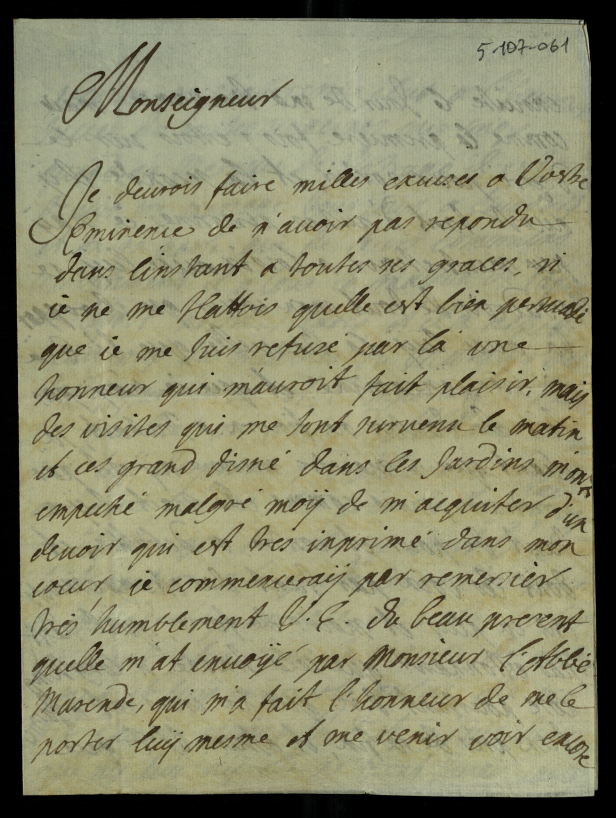 5-107-061
Monseigneur
Je devrois faire milles excuses a Vostre
Eminence de n'avoir pas repondu
dans linstant a toutes ses graces, si
ie ne me flattois quelle est bien persuadé
que ie me suis refusé par la une
honneur qui mauroit fait plaisir, mais
des visites qui me sont survenu le matin
et ces grand disné dans les Jardins m'ont
empeché malgré moy de m'acquiter d'un
devoir qui est tres inprimé dans mon
coeur, ie commenceraij par remersier
tres humblement V. E. du beau present
quelle m'at envoijé par Monsieur l'Abbé
Marende, qui m'a fait l'honneur de me le
porter luij mesme et me venir voir encore